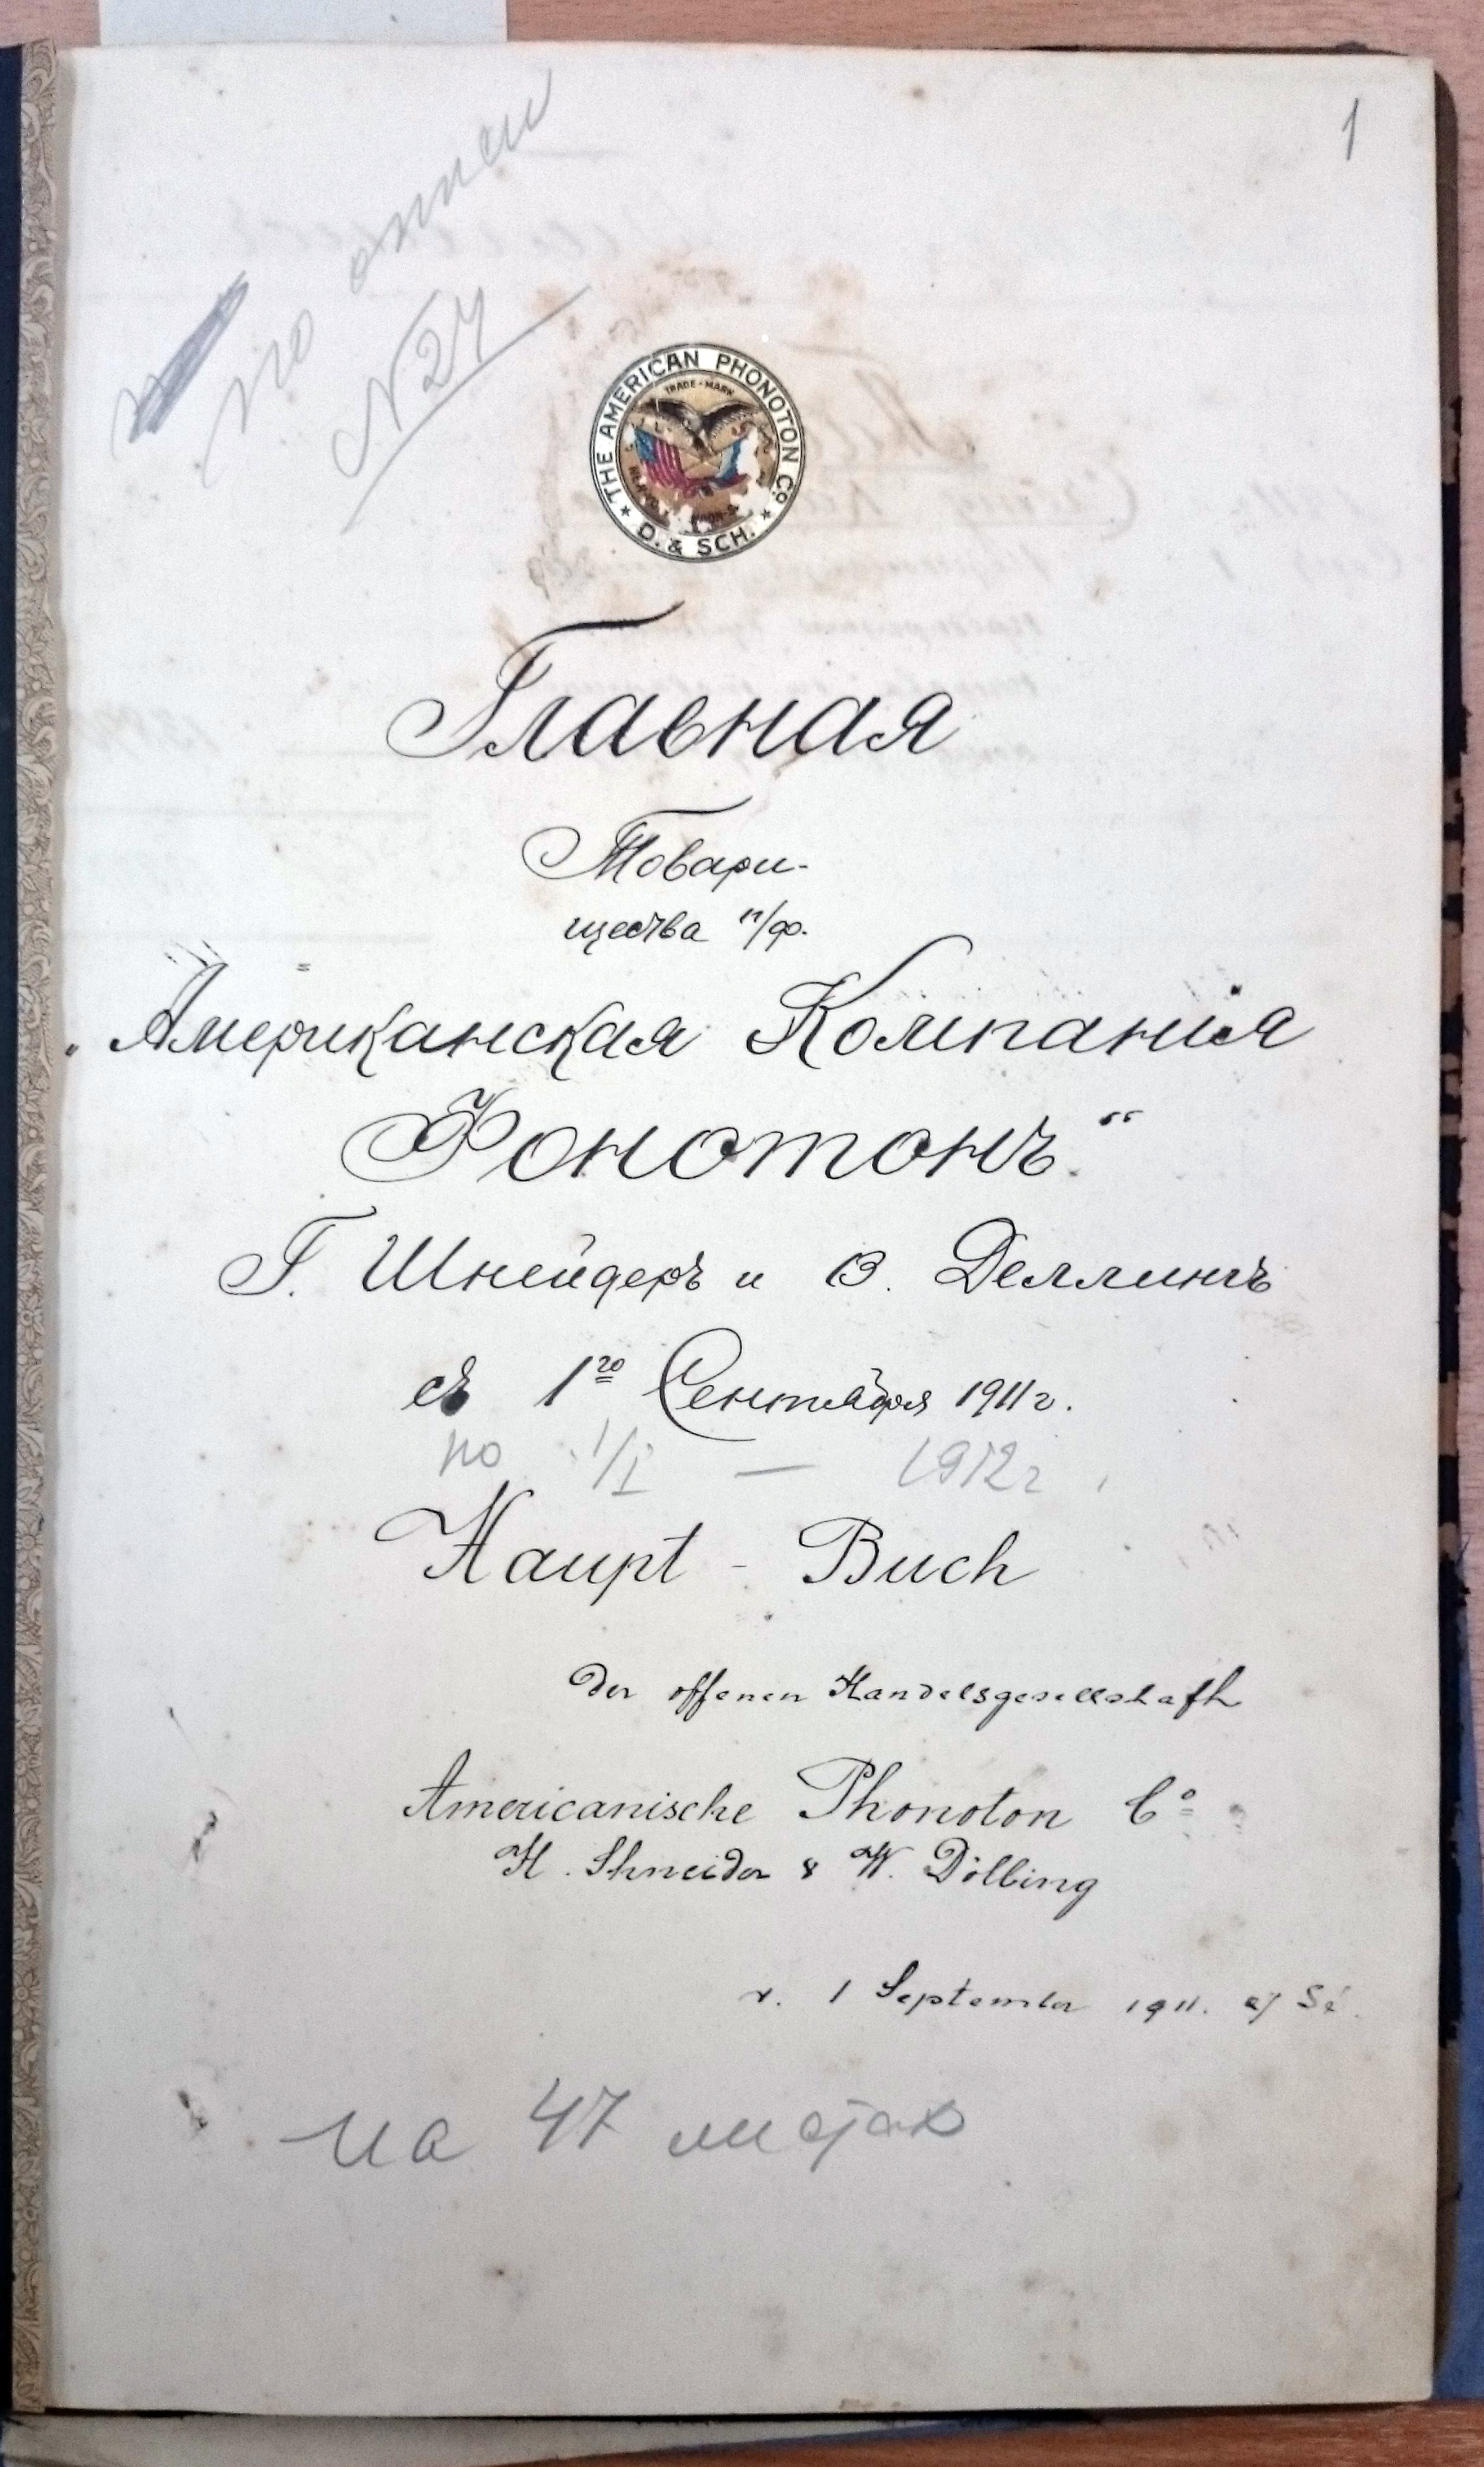 1
по описи
№ 24
THE AMERICAN PHONOTON Co
TRADE-MARK
D. & SCH.
Главная
Товари-
щества п/ф.
„Американская Компанія
Фонотонъ“
Г. Шнейдеръ и В. Деллингъ
съ 1го Сентября 1911 г.
по 1/I — 1912 г
Haupt - Buch
der offenen Handelsgesellschaft
Americanische Phonoton Co
H. Shneider & W. Dölling
v. 1 September 1911.
на 47 листах